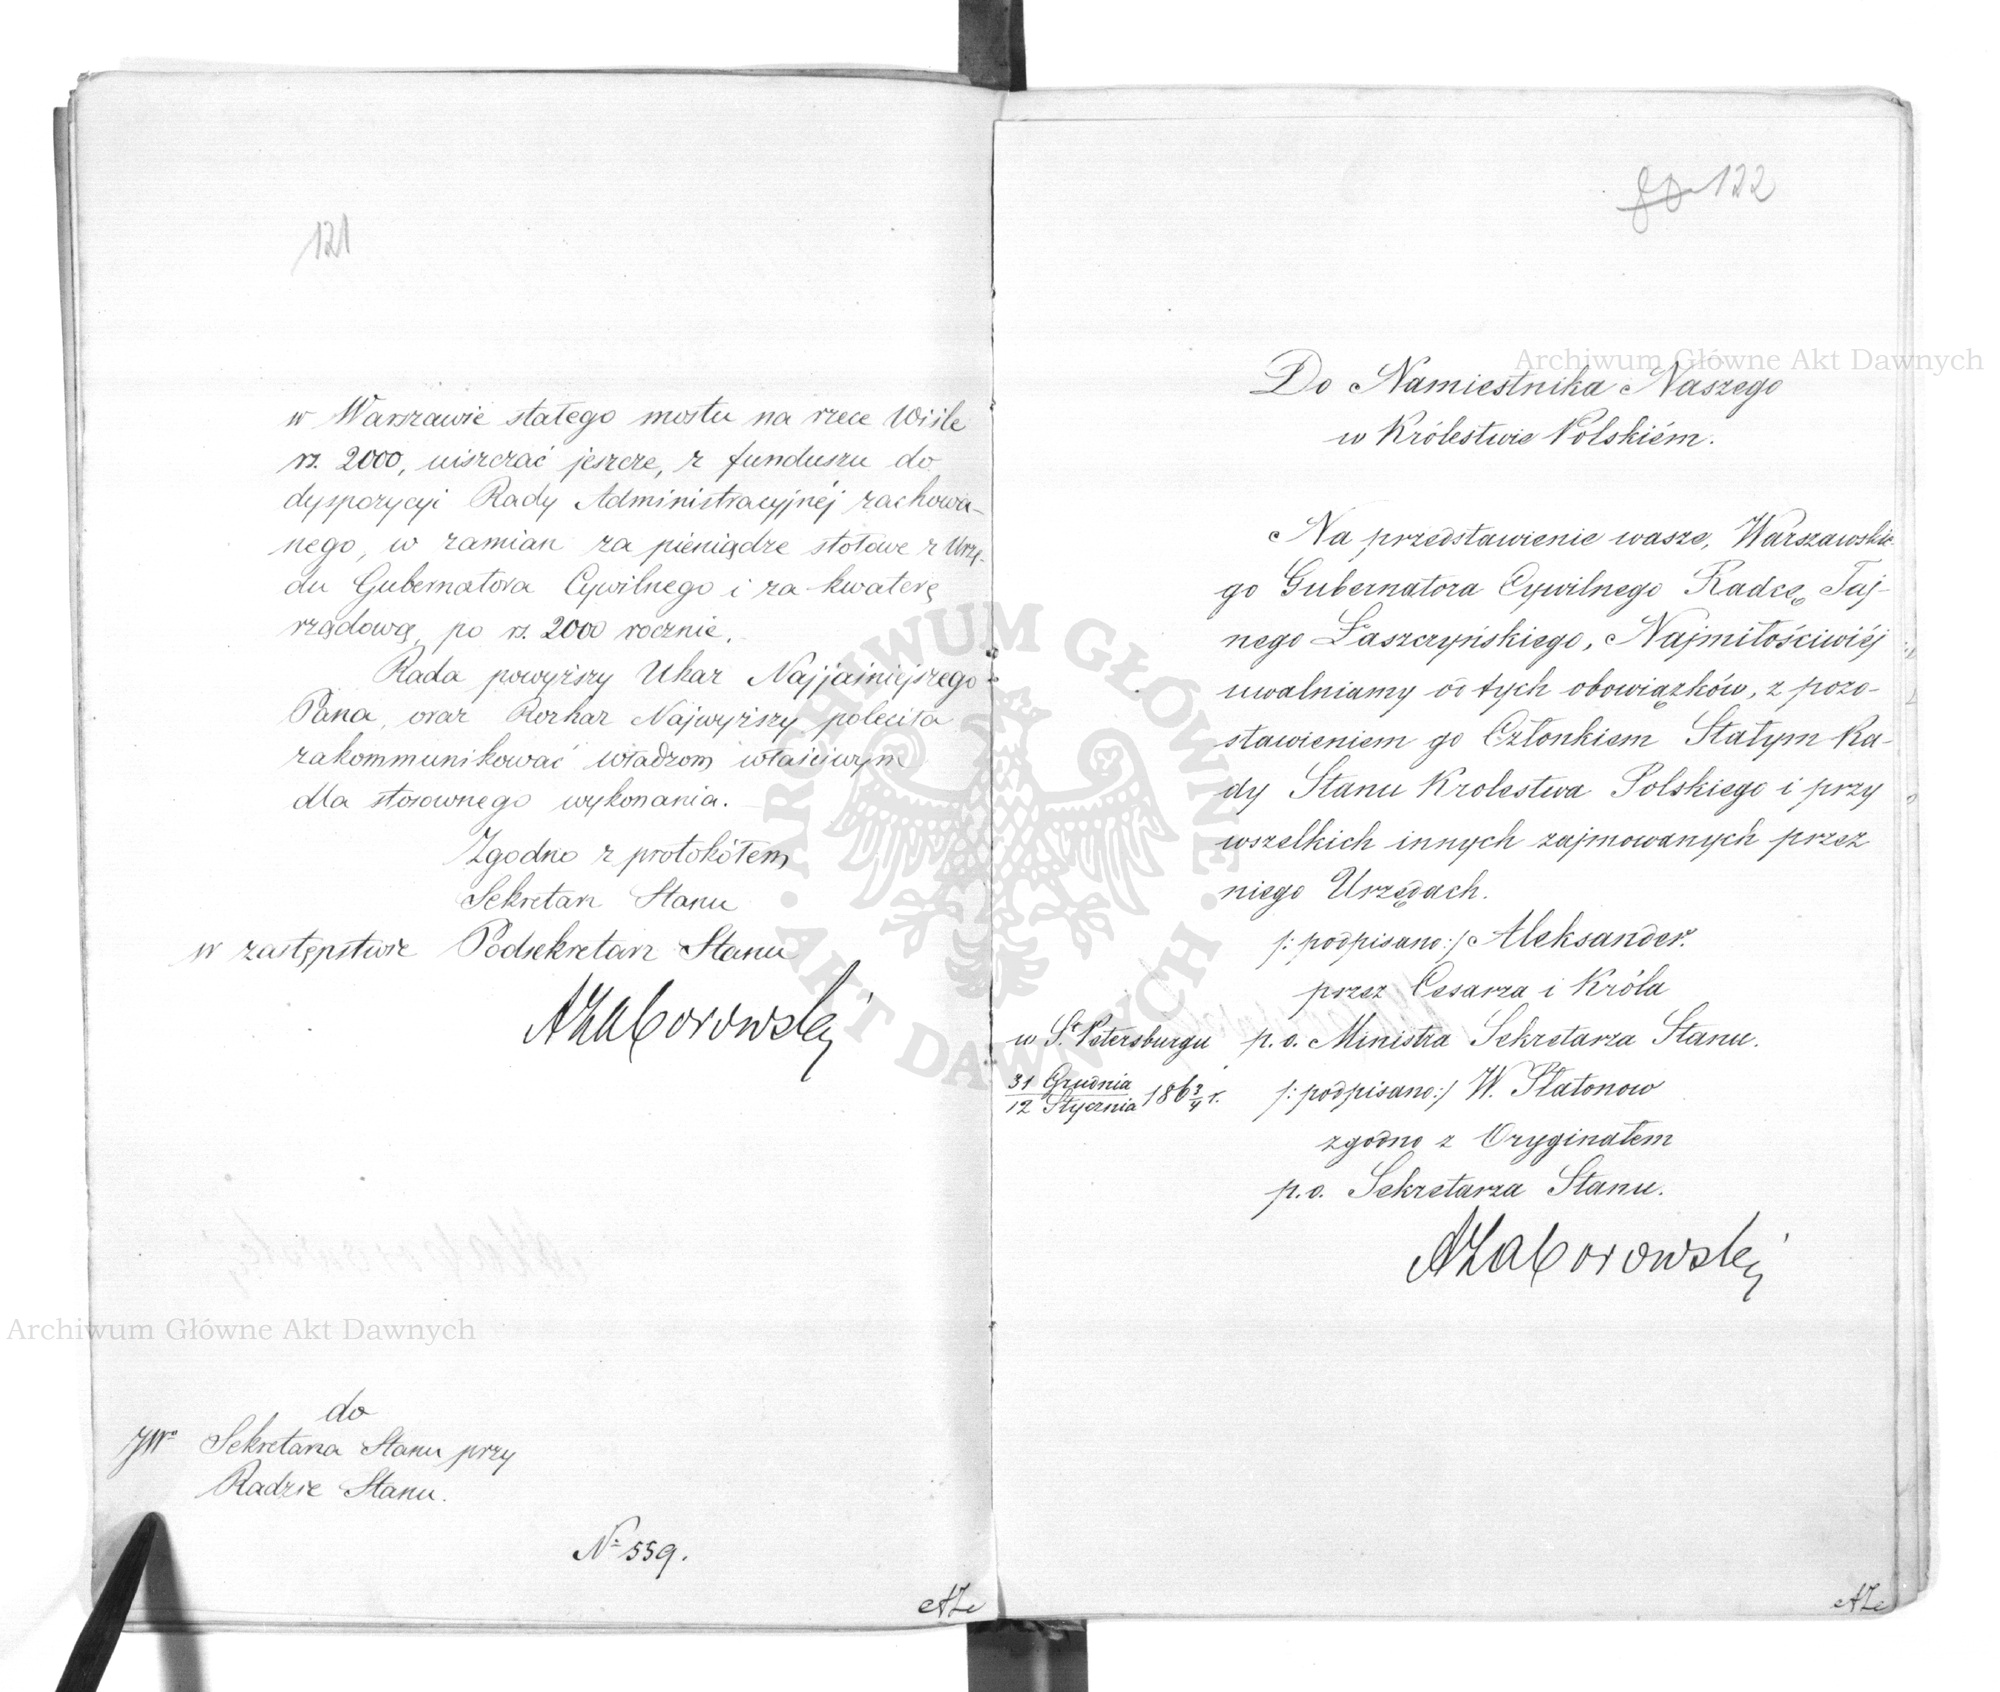 121
w Warszawie stałego mostu na rzece Wiśle
rs. 2000, uiszczać jeszcze, z funduszu do
dyspozycyi Rady Administracyjnéj zachowa-
nego, w zamian za pieniądze stołowe z Urzę-
du Gubernatora Cywilnego i za kwaterę
rządową, po rs. 2000 rocznie.
Rada powyższy Ukaz Najjaśniejszego
Pana, oraz Rozkaz Najwyższy poleciła
zakommunikować władzom właściwym
dla stosownego wykonania.
Zgodno z protokółem
Sekretarz Stanu
w zastępstwie Podsekretarz Stanu
AZaborowski
do
JWo Sekretarza Stanu przy
Radzie Stanu.
No 559.
AZ
122
Do Namiestnika Naszego
w Królestwie Polskiém.
Na przedstawienie wasze, Warszawskie-
go Gubernatora Cywilnego Radcę Taj-
nego Łaszczyńskiego, Najmiłościwiéj
uwalniamy od tych obowiązków, z pozo-
stawieniem go Członkiem Stałym Ra-
dy Stanu Krolestwa Polskiego i przy
wszelkich innych zajmowanych przez
niego Urzędach.
/: podpisano:/ Aleksander.
przez Cesarza i Króla
w St Petersburgu p. o. Ministra Sekretarza Stanu.
31 Grudnia
12 Stycznia 186 3/4 r. /: podpisano:/ W. Płatonow
zgodno z Oryginałem
p.o. Sekretarza Stanu.
AZaborowski
AZ
Archiwum Główne Akt Dawnych
Archiwum Główne Akt Dawnych
ARCHIWUM GŁÓWNE · AKT DAWNYCH ·